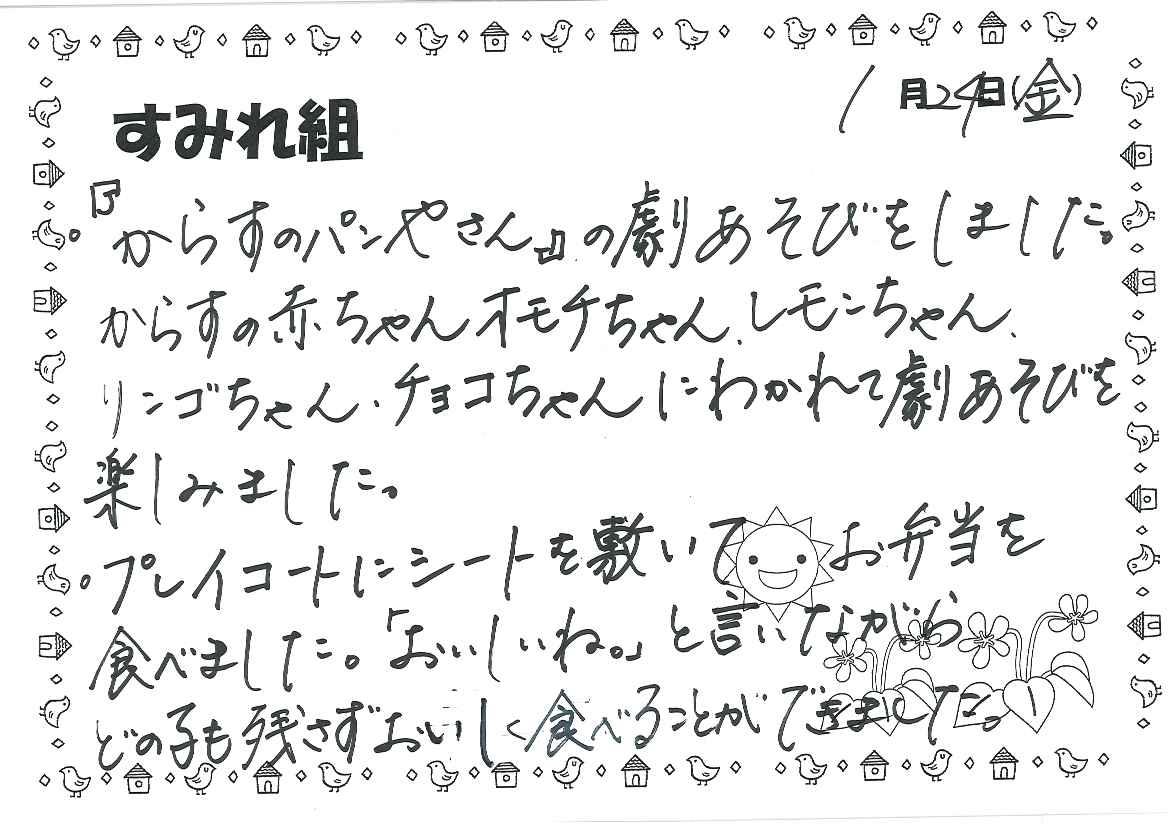 1月24日(金)
すみれ組
。『からすのパンやさん』の劇あそびをしました。
からすの赤ちゃんオモチちゃん、レモンちゃん、
リンゴちゃん、チョコちゃんにわかれて劇あそびを
楽しみました。
。プレイコートにシートを敷いてお弁当を
食べました。「おいしいね。」と言いながら
どの子も残さずおいしく食べることができました。